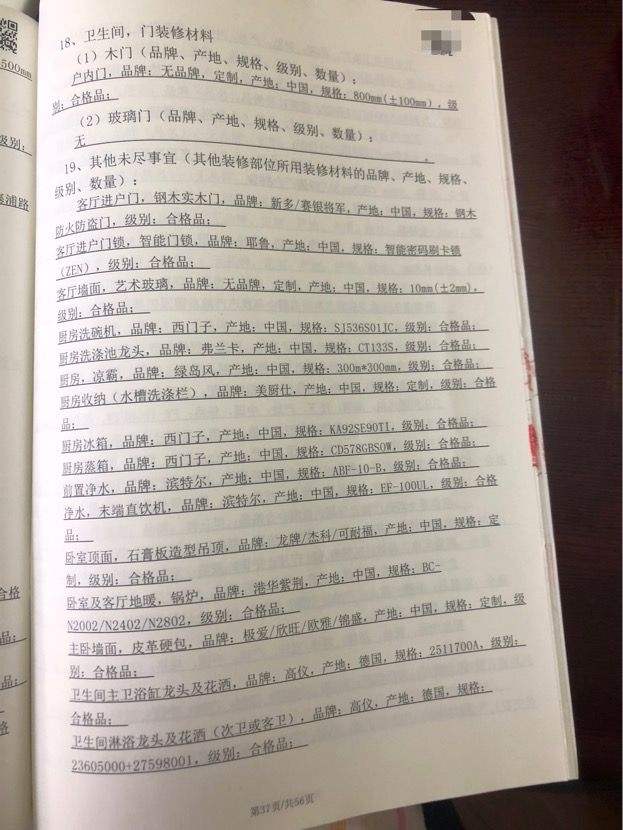 500mm
级别:
溪浦路
合格
品;
品;
格
18、卫生间，门装修材料
（1）木门（品牌、产地、规格、级别、数量）:
户内门，品牌：无品牌，定制，产地：中国，规格：800mm(±100mm)，级
别：合格品；
（2）玻璃门（品牌、产地、规格、级别、数量）；
无。
19、其他未尽事宜（其他装修部位所用装修材料的品牌、产地、规格、
级别、数量）:
客厅进户门，钢木实木门，品牌：新多/赛银将军，产地：中国，规格：钢木
防火防盗门，级别：合格品；
客厅进户门锁，智能门锁，品牌：耶鲁，产地：中国，规格：智能密码刷卡锁
（ZEN），级别：合格品；
客厅墙面，艺术玻璃，品牌：无品牌，定制，产地：中国，规格：10mm(±2mm)，
级别：合格品；
厨房洗碗机，品牌：西门子，产地：中国，规格：SJ536S01JC，级别：合格品；
厨房洗涤池龙头，品牌：弗兰卡，产地：中国，规格：CT133S，级别：合格品；
厨房，凉霸，品牌：绿岛风，产地：中国，规格：300m*300mm，级别：合格品；
厨房收纳（水槽洗涤栏），品牌：美厨仕，产地：中国，规格：定制，级别：合格
品；
厨房冰箱，品牌：西门子，产地：中国，规格：KA92SE90TI，级别：合格品；
厨房蒸箱，品牌：西门子，产地：中国，规格：CD578GBS0W，级别：合格品；
前置净水，品牌：滨特尔，产地：中国，规格：ABF-10-B，级别：合格品；
净水，末端直饮机，品牌：滨特尔，产地：中国，规格：EF-100UL，级别：合格
品；
卧室顶面，石膏板造型吊顶，品牌：龙牌/杰科/可耐福，产地：中国，规格：定
制，级别：合格品；
卧室及客厅地暖，锅炉，品牌：港华紫荆，产地：中国，规格：BC-
N2002/N2402/N2802，级别：合格品；
主卧墙面，皮革硬包，品牌：极爱/欣旺/欧雅/锦盛，产地：中国，规格：定制，级
别：合格品；
卫生间主卫浴缸龙头及花洒，品牌：高仪，产地：德国，规格：2511700A，级别：
合格品；
卫生间淋浴龙头及花洒（次卫或客卫），品牌：高仪，产地：德国，规格：
23605000+27598001，级别：合格品；
第37页/共56页